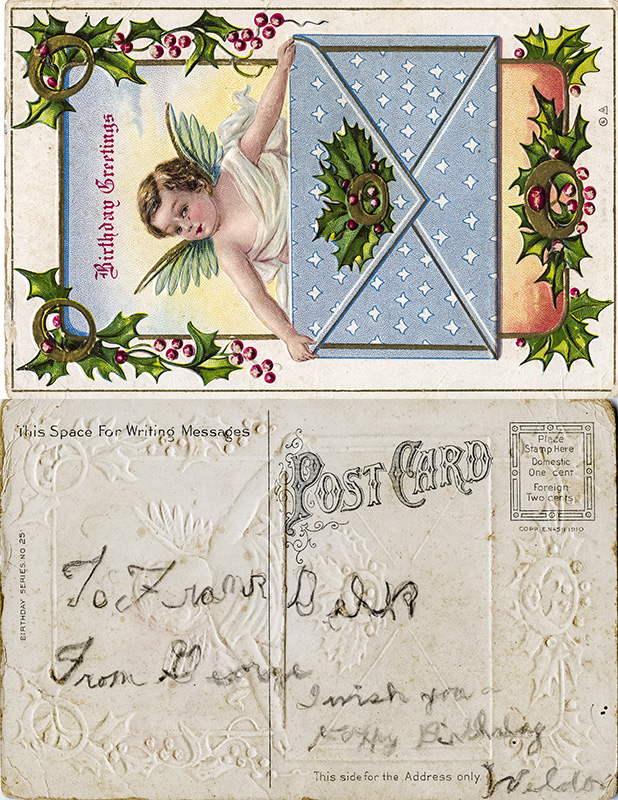 Birthday Greetings
This Space For Writing Messages
POST CARD
Place
Stamp Here
Domestic
One cent
Foreign
Two cents
COPR. E. NASH 1910
BIRTHDAY SERIES NO 25
To Frank
From George
I wish you a
Happy Birthday
This side for the Address only.